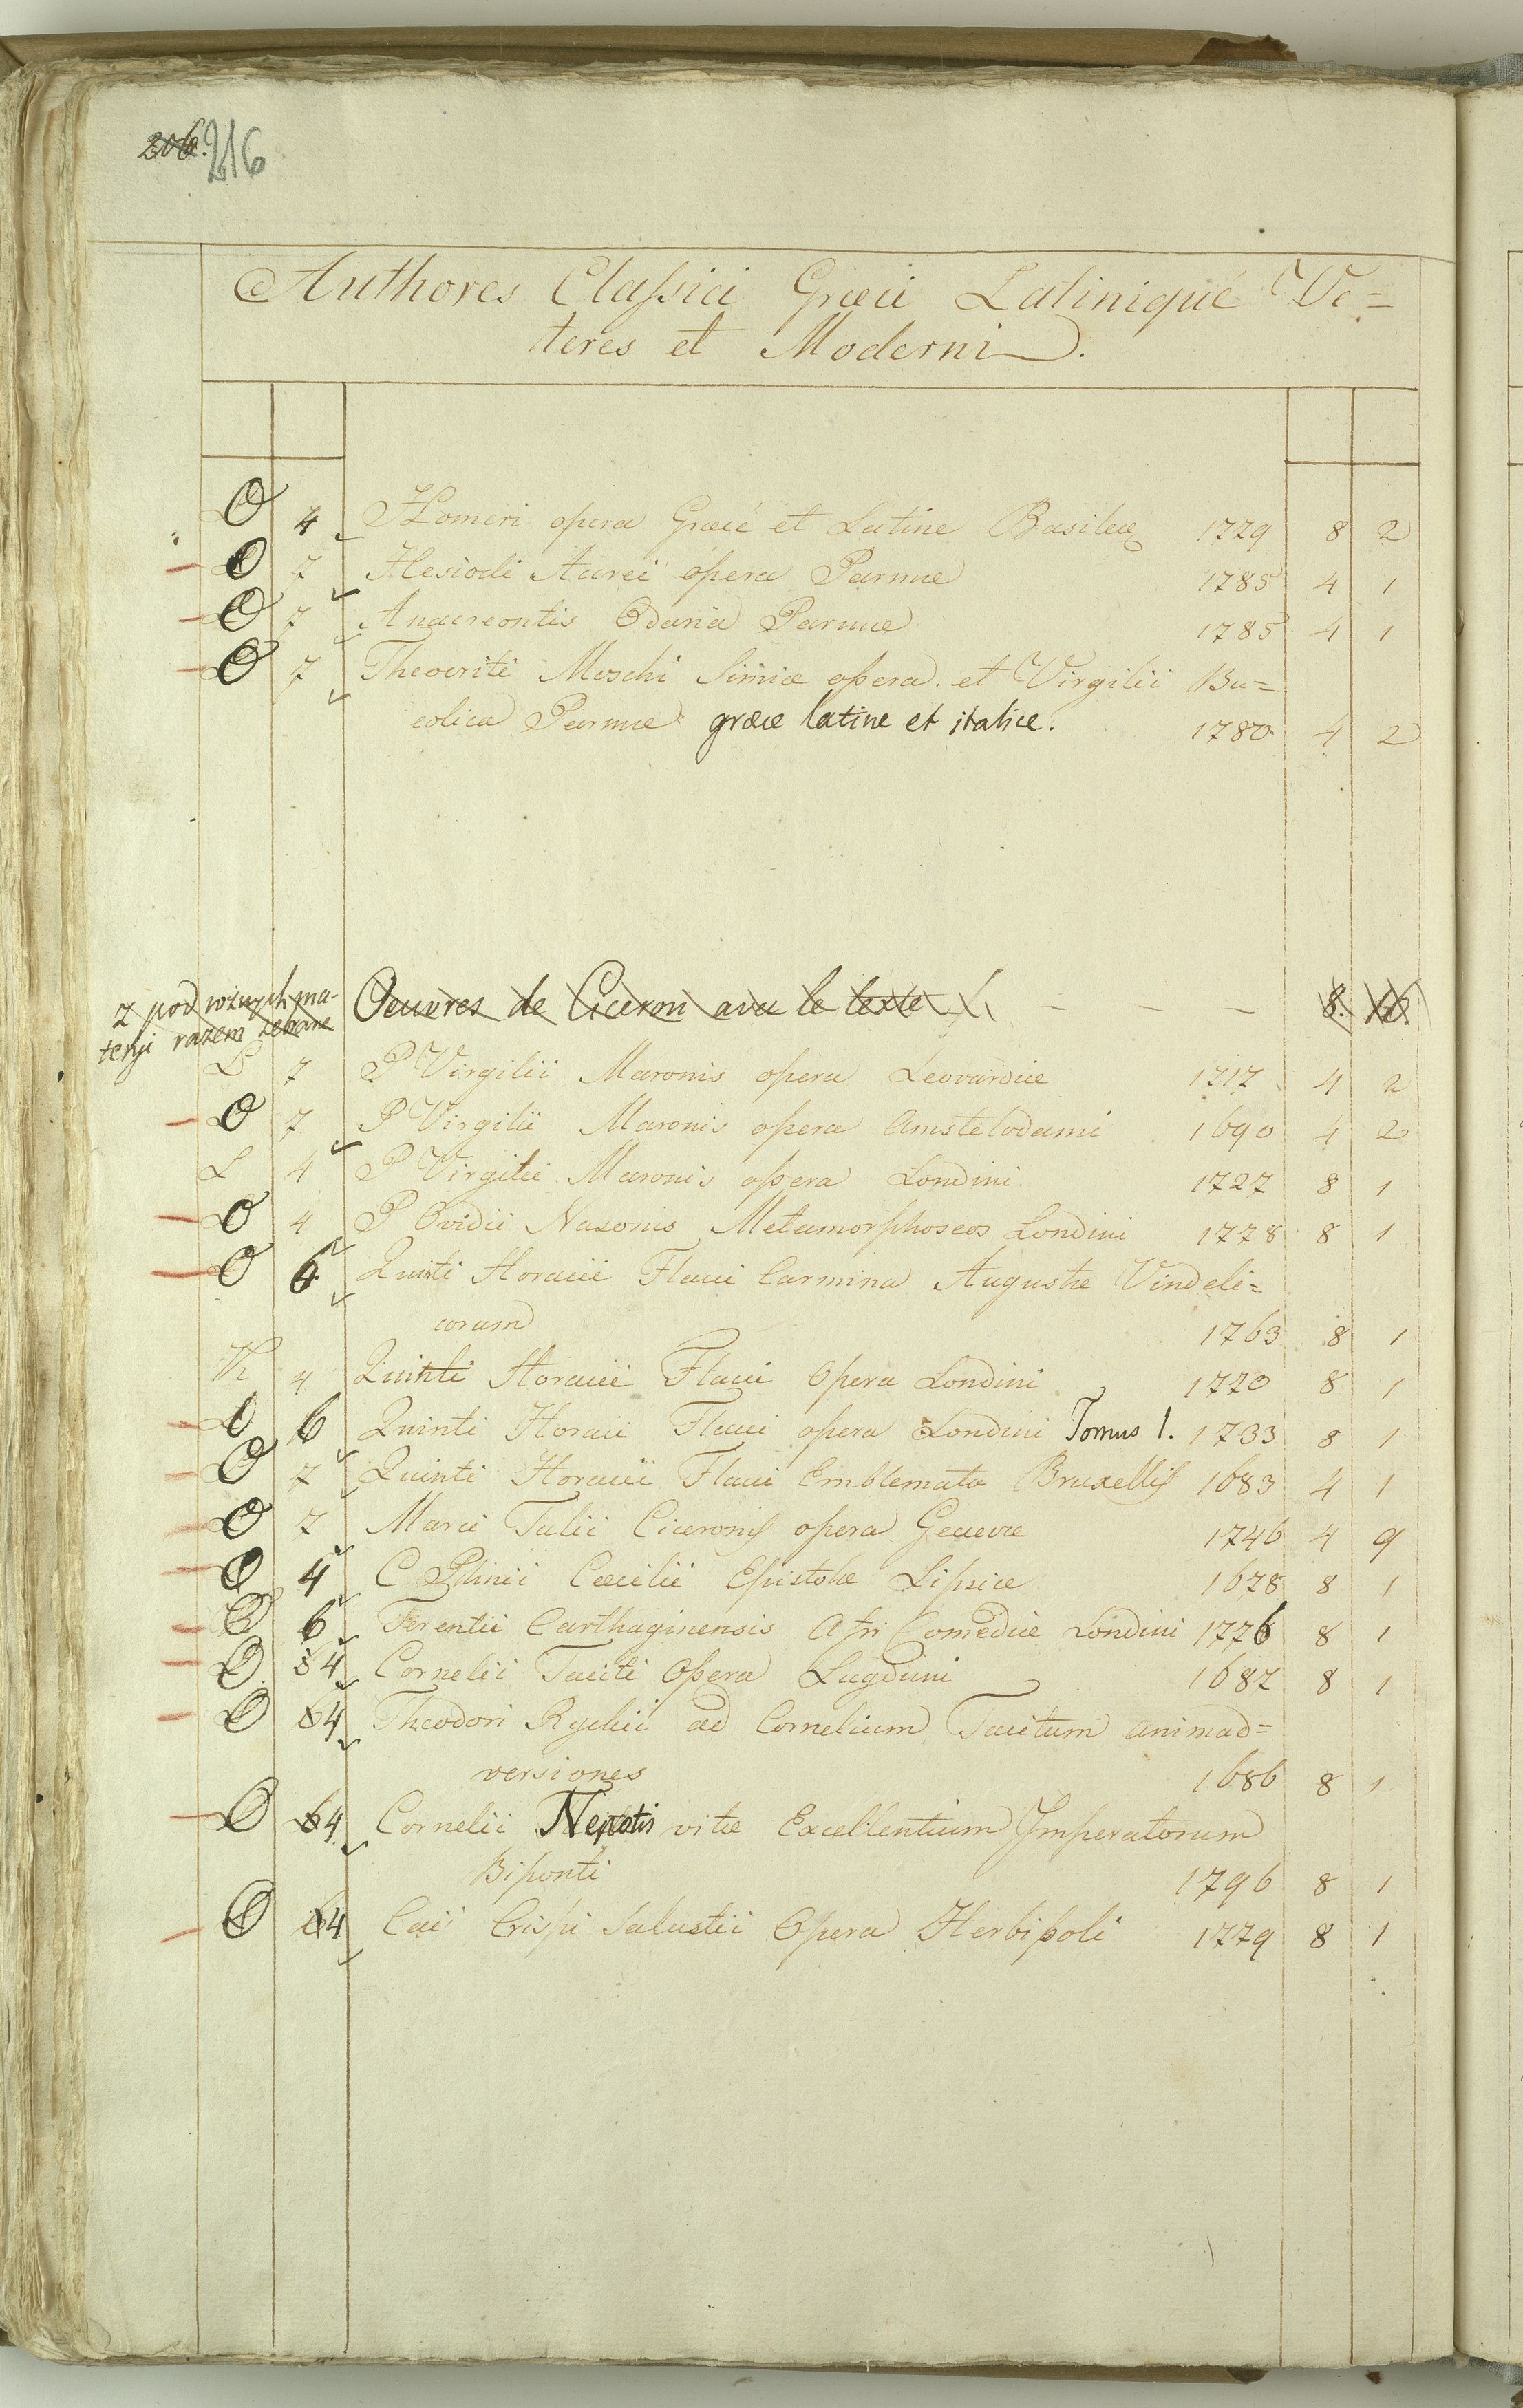 206. 216
Authores Classici Græci Latinique Ve=
teres et Moderni.
O 4 Homeri opera Græcé et Latine Basileæ 1779 8 2
O 7 Hesiodi Ascrei opera Parmæ 1785 4 1
O 7 Anacreontis Odaria Parmæ 1785 4 1
O 7 Theocriti Moschi Simiæ opera et Virgilii Bu=
colica Parmæ græce latine et italice. 1780 4 2
z pod różnych ma-
teryi razem zebrane
Oeuvres de Ciceron avec le texte f. — — — 8. 16.
L 7 P Virgilii Maronis opera Leovardiæ 1717 4 2
O 7 P Virgilii Maronis opera Amstelodami 1690 4 2
L 4 P Virgilii Maronis opera Londini 1727 8 1
O 4 P Ovidii Nasonis Metamorphoseos Londini 1778 8 1
O 6 Quinti Horacii Flacci Carmina Augustæ Vindeli=
corum 1763 8 1
K 4 Quinti Horacii Flacci Opera Londini 1770 8 1
O 6 Quinti Horacii Flacci opera Londini Tomus 1. 1733 8 1
O 7 Quinti Horacii Flacci Emblemata Bruxellis 1683 4 1
O 7 Marci Tulii Ciceronis opera Genevæ 1746 4 9
O 4 C Plinii Cæcilii Epistolæ Lipsiæ 1678 8 1
O 6 Terentii Carthaginensis Afri Comediæ Londini 1776 8 1
O 4 Cornelii Taciti Opera Lugduni 1687 8 1
O 64 Theodori Ryckii ad Cornelium Tacitum animad=
versiones 1686 8 1
O 64 Cornelii Nepotis vitæ Excellentium Imperatorum
Biponti 1796 8 1
O 64 Caii Crispi Salustii Opera Herbipoli 1779 8 1